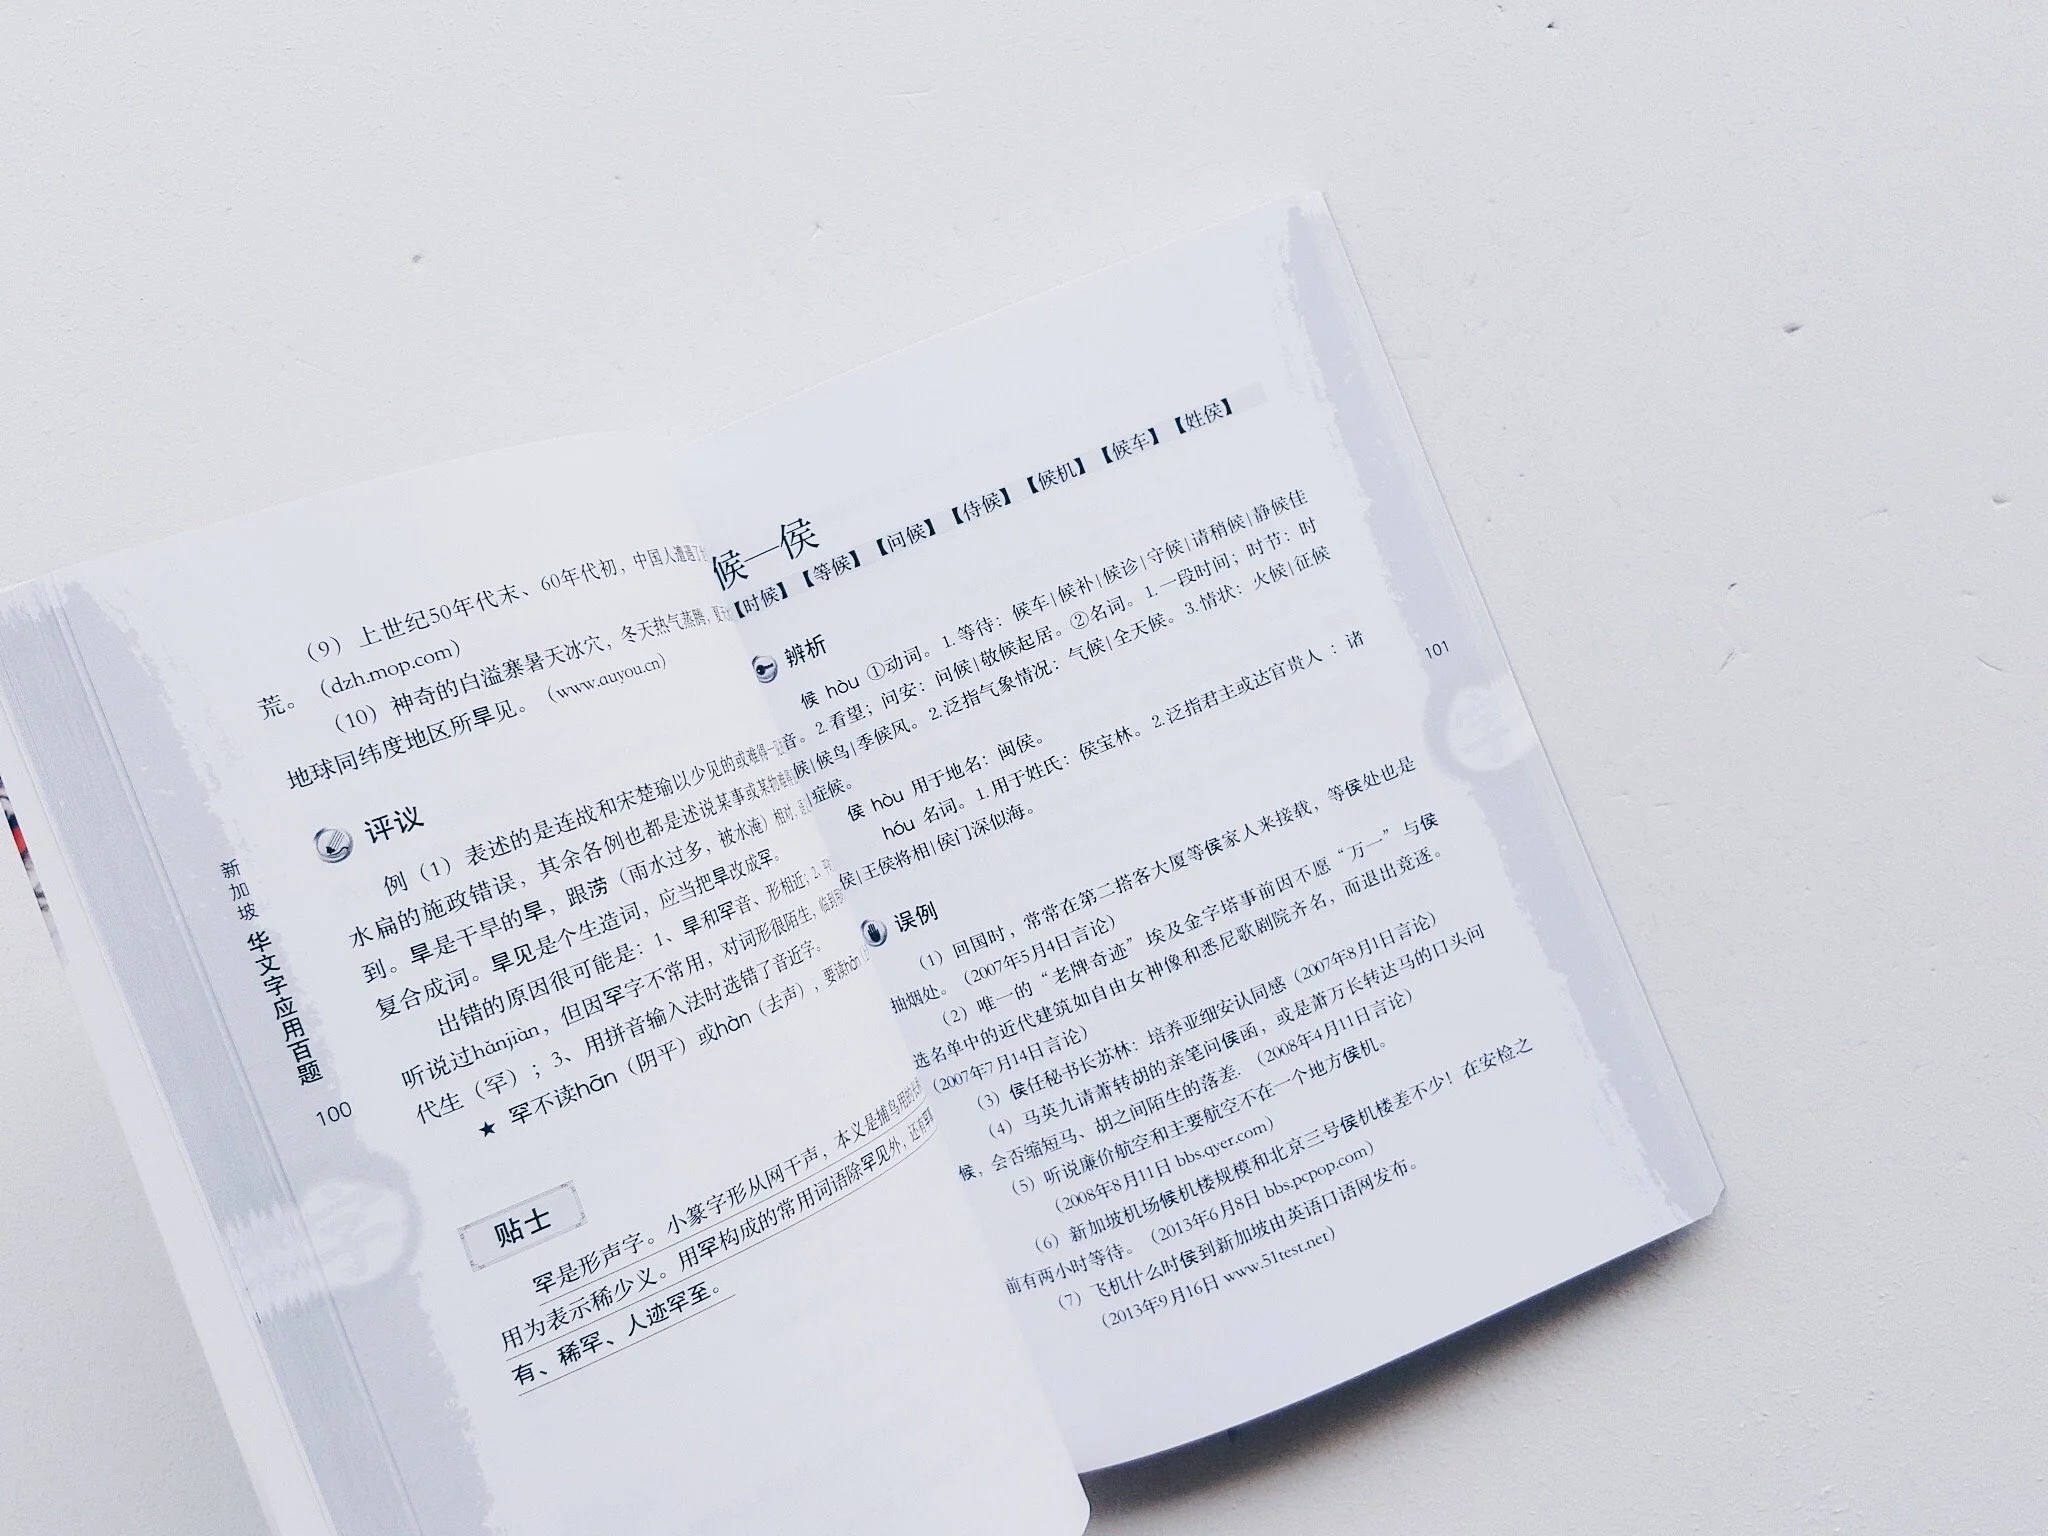 （9）上世纪50年代末、60年代初，中国人遭遇了
荒。（dzh.mop.com）
（10）神奇的白溢寨暑天冰穴，冬天热气蒸腾，夏
地球同纬度地区所旱见。（www.auyou.cn）
评议
例（1）表述的是连战和宋楚瑜以少见的或难得一
水扁的施政错误，其余各例也都是述说某事或某物难
到。旱是干旱的旱，跟涝（雨水过多，被水淹）相对，
复合成词。旱见是个生造词，应当把旱改成罕。
出错的原因很可能是：1、旱和罕音、形相近；2、
听说过hǎnjiàn，但因罕字不常用，对词形很陌生，临到
代生（罕）；3、用拼音输入法时选错了音近字。
★ 罕不读hān（阴平）或hàn（去声），要读hǎn
贴士
罕是形声字。小篆字形从网干声，本义是捕鸟用的长
用为表示稀少义。用罕构成的常用词语除罕见外，还有罕
有、稀罕、人迹罕至。
新加坡 华文字应用百题
100
候—侯
【时候】【等候】【问候】【侍候】【候机】【候车】【姓侯】
辨析
候 hòu ①动词。1.等待：候车|候补|候诊|守候|请稍候|静候佳
音。2.看望；问安：问候|敬候起居。②名词。1.一段时间；时节：时
候|候鸟|季候风。2.泛指气象情况：气候|全天候。3.情状：火候|征候
|症候。
侯 hòu 用于地名：闽侯。
hóu 名词。1.用于姓氏：侯宝林。2.泛指君主或达官贵人：诸
侯|王侯将相|侯门深似海。
误例
（1）回国时，常常在第二搭客大厦等侯家人来接载，等侯处也是
抽烟处。（2007年5月4日言论）
（2）唯一的“老牌奇迹”埃及金字塔事前因不愿“万一”与侯
选名单中的近代建筑如自由女神像和悉尼歌剧院齐名，而退出竞逐。
（2007年7月14日言论）
（3）侯任秘书长苏林：培养亚细安认同感（2007年8月1日言论）
（4）马英九请萧转胡的亲笔问侯函，或是萧万长转达马的口头问
候，会否缩短马、胡之间陌生的落差.（2008年4月11日言论）
（5）听说廉价航空和主要航空不在一个地方侯机。
（2008年8月11日 bbs.qyer.com）
（6）新加坡机场候机楼规模和北京三号侯机楼差不少！在安检之
前有两小时等待。（2013年6月8日 bbs.pcpop.com）
（7）飞机什么时侯到新加坡由英语口语网发布。
（2013年9月16日 www.51test.net）
101
字
字